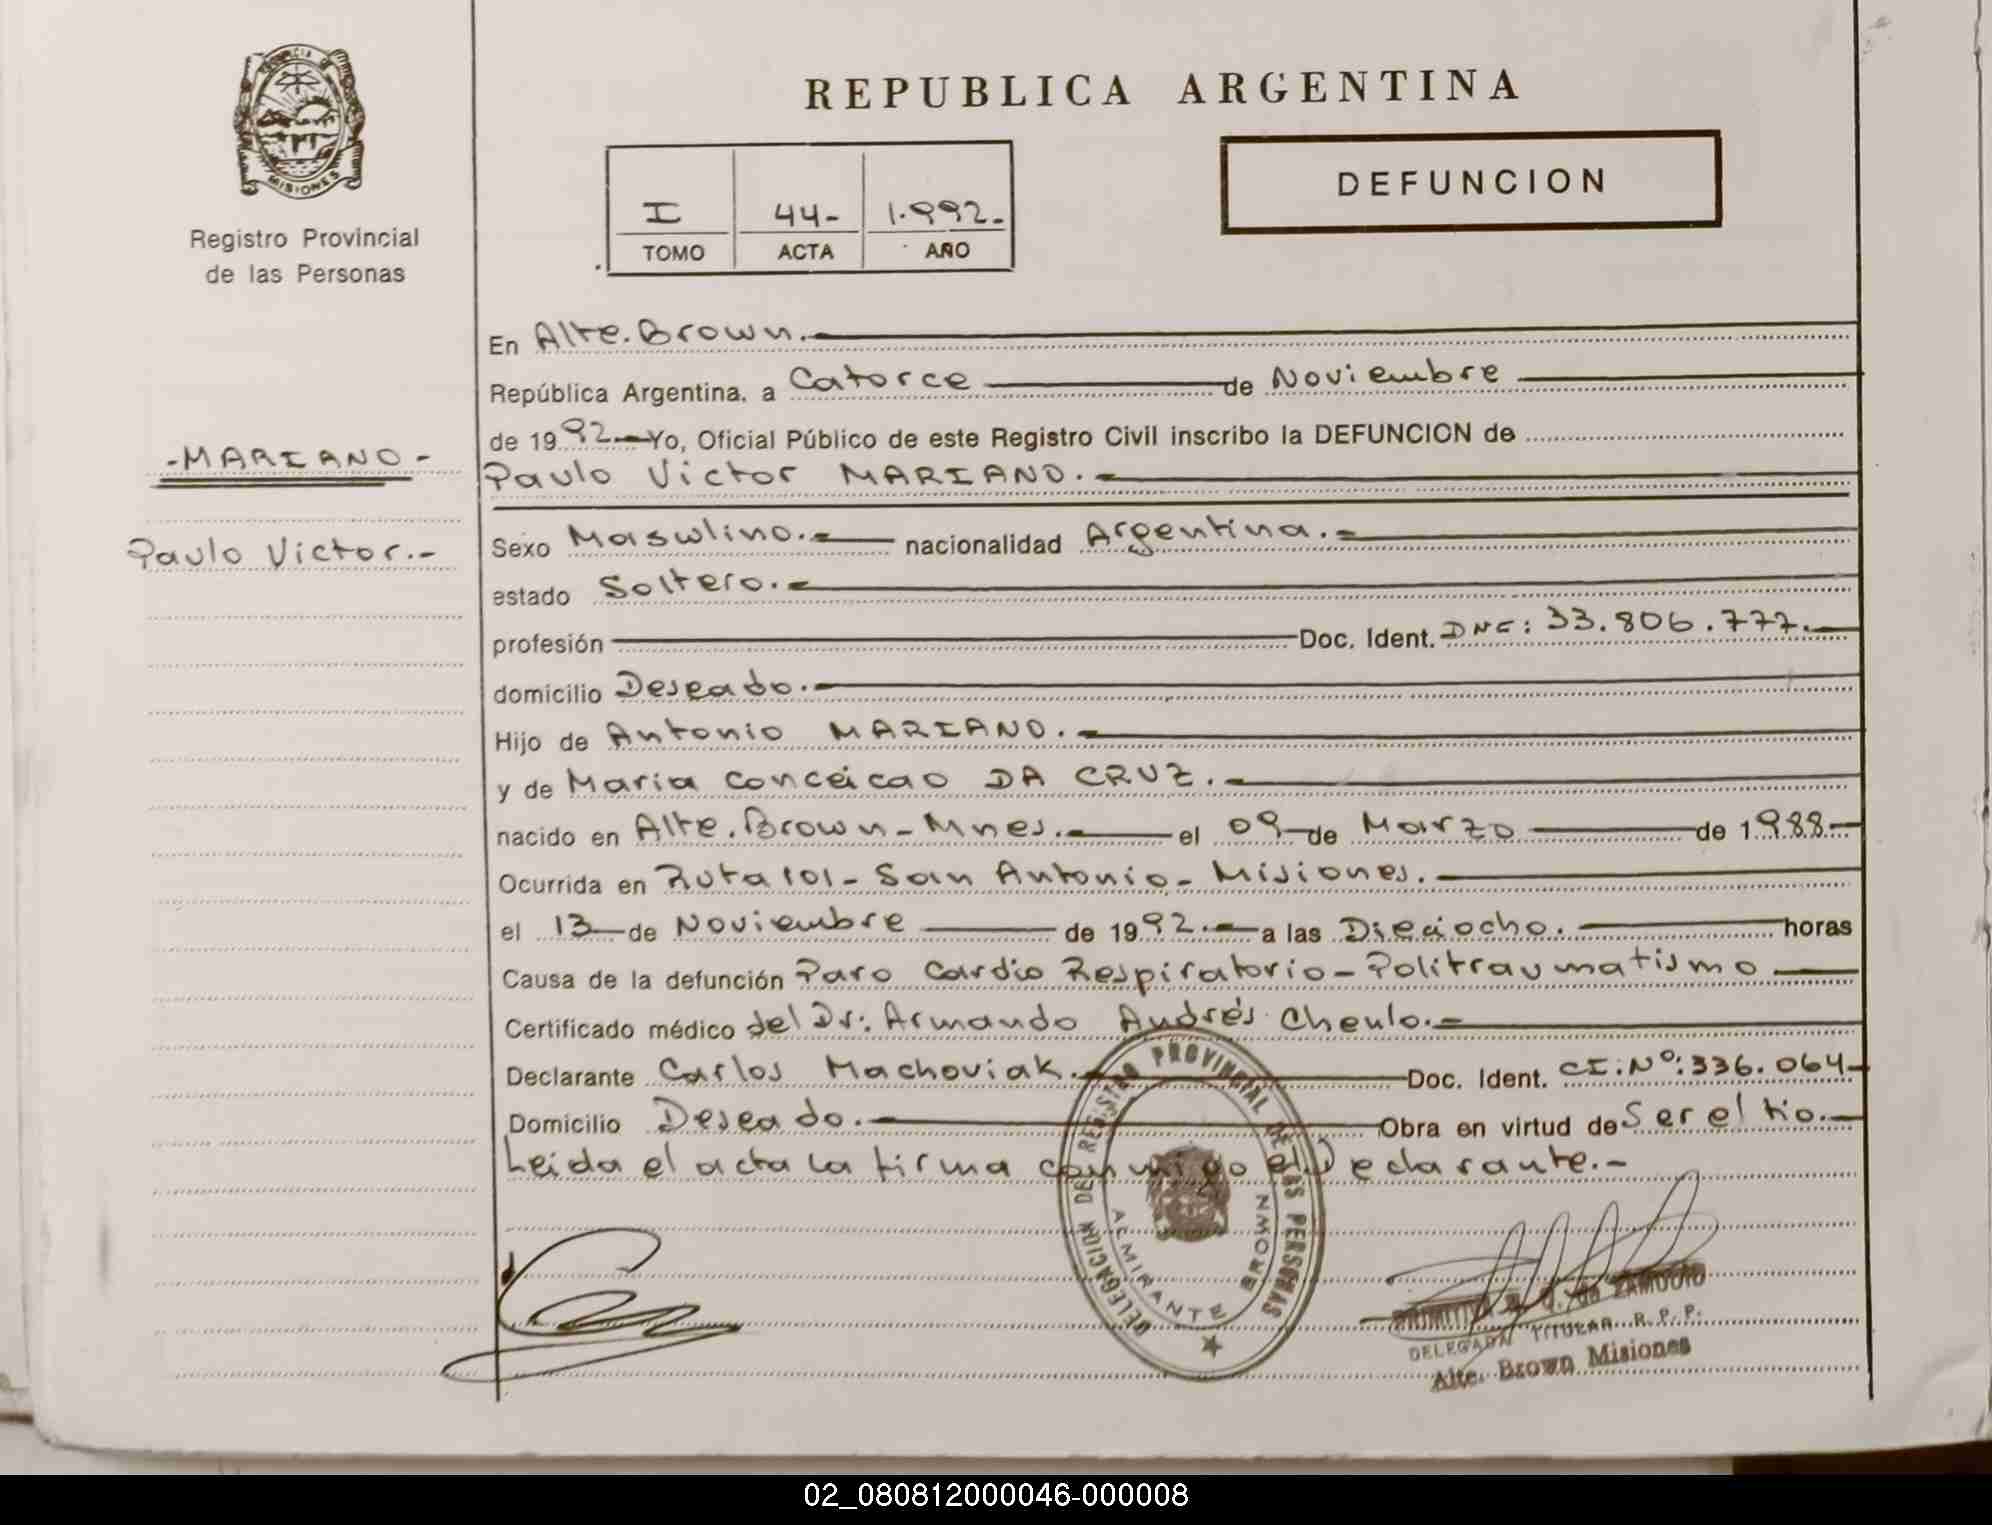 PROVINCIA DE
MISIONES
Registro Provincial
de las Personas
REPUBLICA ARGENTINA
I 44- 1.992.-
TOMO ACTA AÑO
DEFUNCION
-MARIANO-
Paulo Victor.-
En Alte. Brown.
República Argentina, a Catorce de Noviembre
de 1992.- Yo, Oficial Público de este Registro Civil inscribo la DEFUNCION de
Paulo Victor MARIANO.-
Sexo Masculino.- nacionalidad Argentina.-
estado Soltero.-
profesión Doc. Ident. DNI: 33.806.777.
domicilio Deseado.-
Hijo de Antonio MARIANO.-
y de Maria Conceicao DA CRUZ.-
nacido en Alte. Brown-Mnes.- el 09 de Marzo de 1.988-
Ocurrida en Ruta 101- San Antonio- Misiones.-
el 13 de Noviembre de 1992.- a las Dieciocho. horas
Causa de la defunción Paro Cardio Respiratorio- Politraumatismo
Certificado médico del Dr: Armando Andrés Chenlo.-
Declarante Carlos Machoviak.- Doc. Ident. CI:Nº:336.064-
Domicilio Deseado.- Obra en virtud de Ser el tio.-
Leida el acta la firma conmigo el Declarante.-
DELEGACION DE REGISTRO PROVINCIAL DE LAS PERSONAS
ALMIRANTE BROWN
PRIMITIVA ZAMUDIO
DELEGADA TITULAR R.P.P.
Alte. Brown Misiones
02_080812000046-000008